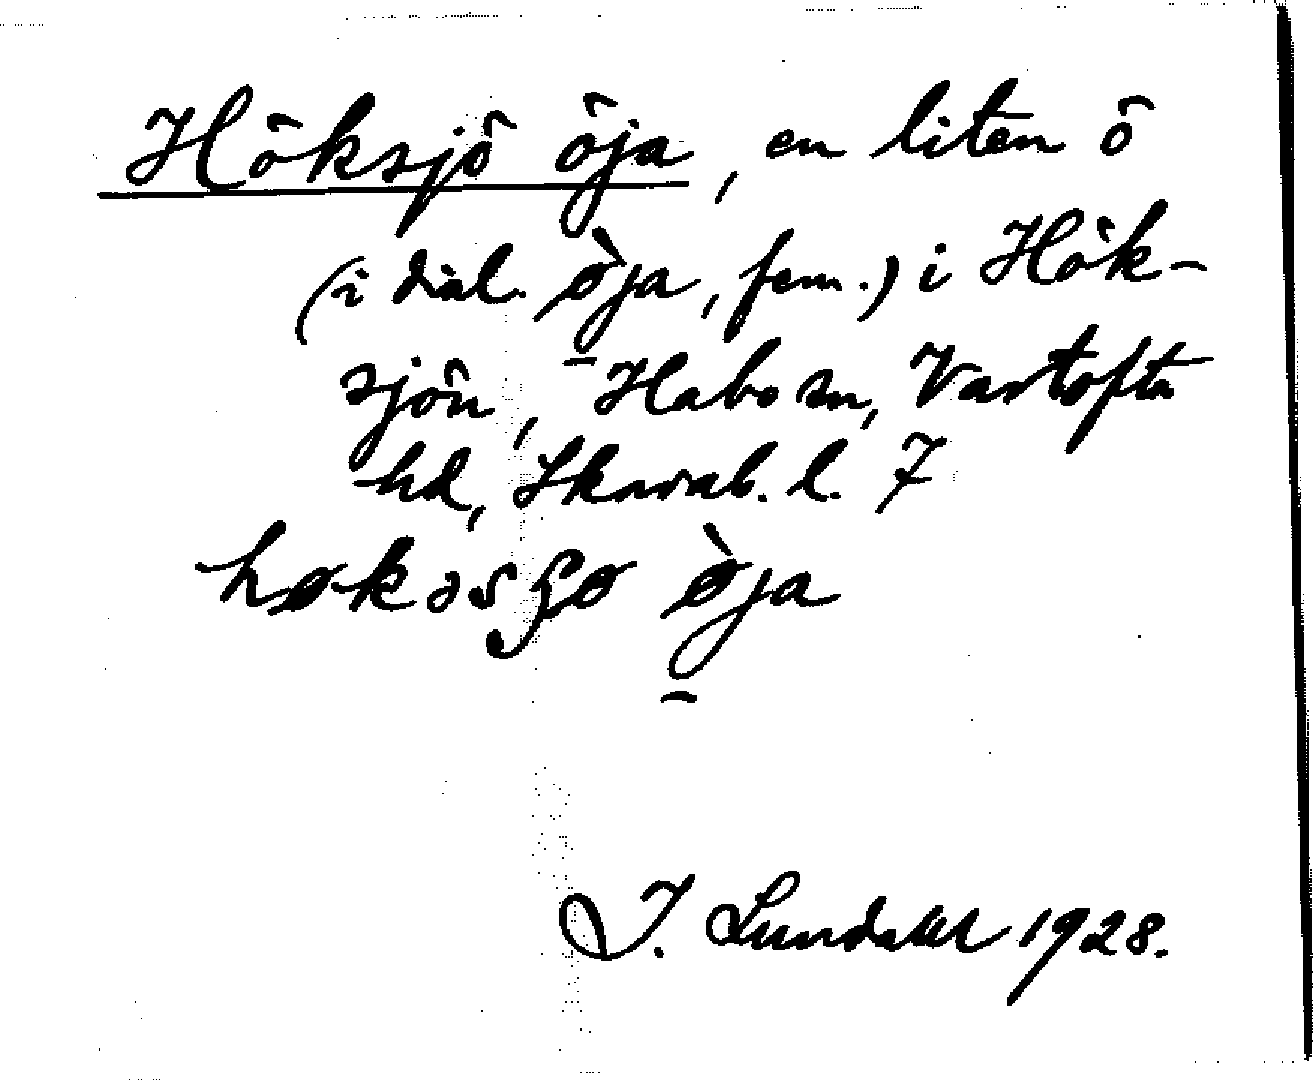 Höksjö öja, en liten ö
(i dial. ø̀ja, fem.) i Hök-
sjön, Habo sn, Vartofta
hd, Skarab. l. 7
høkəsʃo ø̀ja
I. Lundahl 1928.